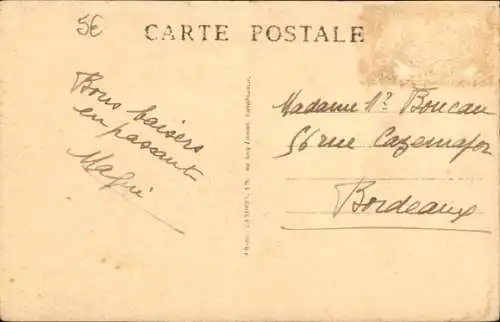 5€
CARTE POSTALE
Bons baisers
en passant
Madame
56 rue Cazemajor
Bordeaux